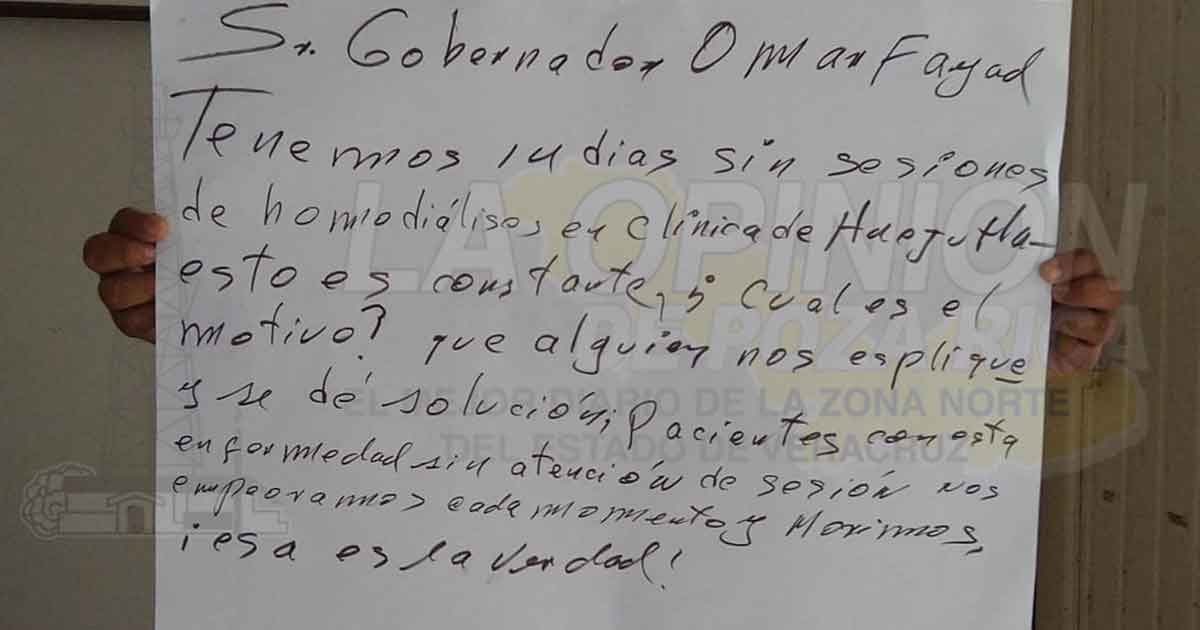 Sr. Gobernador Omar Fayad
Tenemos 14 dias sin sesiones
de homodiálisos en clínica de Huejutla-
esto es constante, ¿ Cual es el
motivo? que alguien nos esplique
y se dé solución; Pacientes con esta
enformedad sin atención de sesión nos
empeoramos cada momento y Morimos,
¡esa es la verdad!
LA OPINION
DE POZA RICA
EL MEJOR DIARIO DE LA ZONA NORTE
DEL ESTADO DE VERACRUZ